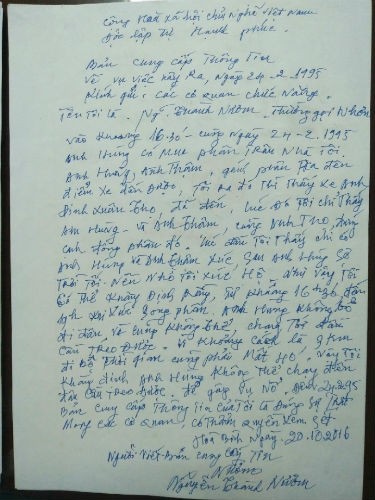 Cộng Hoà xã hội chủ Nghĩa Việt Nam
Độc lập Tự Hạnh phúc.
Bản cung cấp Thông Tin
Về vụ việc xảy Ra, Ngày 24-2-1995
Kính gửi: Các cơ quan chức Năng.
Tên Tôi là. Ng. Thanh Nhờm. Thường gọi Nhờm
Vào khoảng 16.30' cùng ngày 24-2-1995
Anh Hùng có Mua phân Trâu Nhà Tôi.
Anh Hùng, Anh Thẩm, gánh phân Ra đến
điểm Xe đến được, Tôi Ra đó Thì Thấy Xe Anh
Đinh Xuân Thọ, đã đến, lúc đó Tôi chỉ Thấy
Anh Hùng và Anh Thẩm, cùng Anh Thọ, đứng
cạnh đống phân đó. Lúc đầu Tôi Thấy chỉ có
Anh Hùng và Anh Thẩm xúc sau Anh Hùng
Tôi Nên Nhờ Tôi xúc Hộ. Như vậy Tôi
có Thể Khẳng Định Rằng, Từ 16h30, đến
khi xúc xong phân, Anh Hùng Không bỏ
đi đâu, và cũng Không Thể, chạy Tới đầu
Cầu Treo được. Vì Khoảng cách là 9 km
đi bộ Thời gian cũng phải Mất, Vậy Tôi
Khẳng định Anh Hùng Không Thể chạy đến
đầu Cầu Treo được. để gây Vụ Nổ 24.2.95
Bản cung cấp Thông Tin của Tôi là Đúng Sự Thật
Mong các cơ quan, có Thẩm quyền Xem xét
Hoà Bình Ngày. 20.10.2016
Người Viết Bản cung cấp Tin
Nhờm
Nguyễn Thanh Nhờm